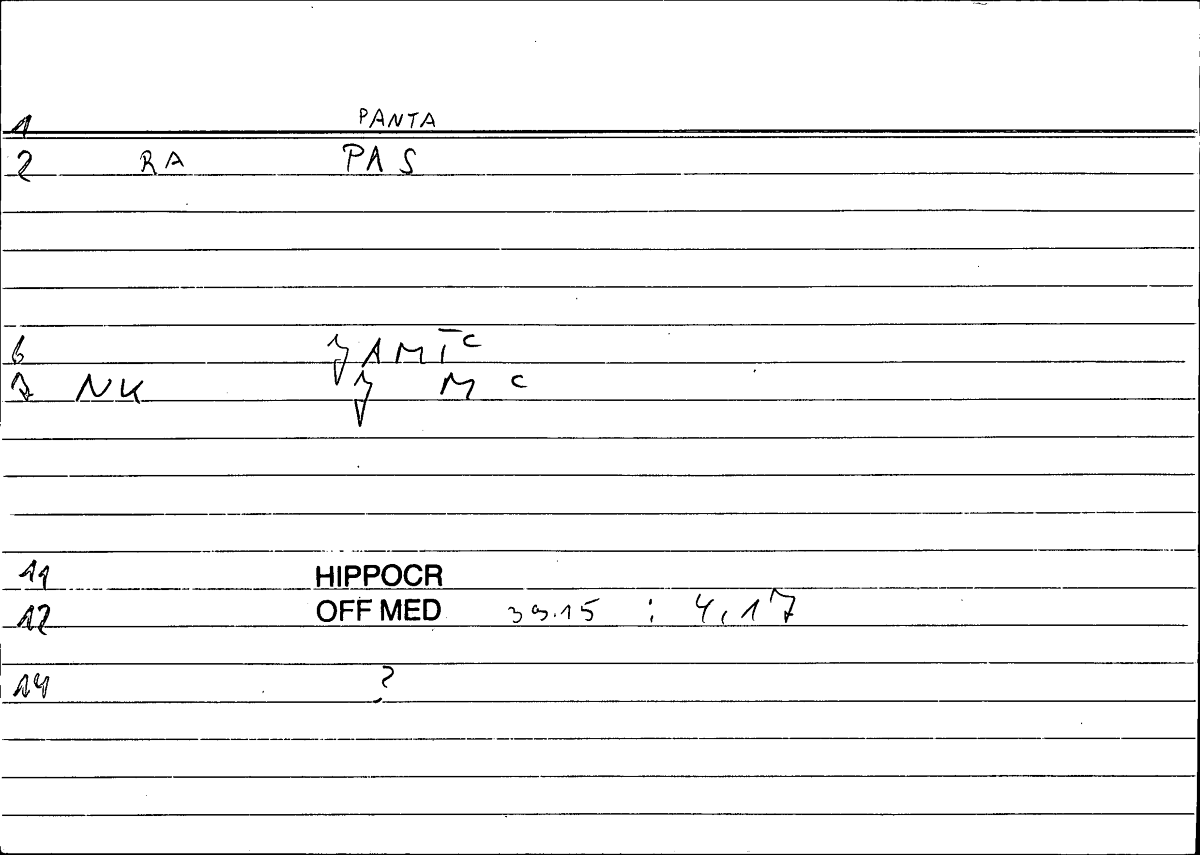 1 PANTA
2 RA PAS
6 AMIC
7 NK M C
11 HIPPOCR
12 OFF MED 39.15 : 4,17
14 ?